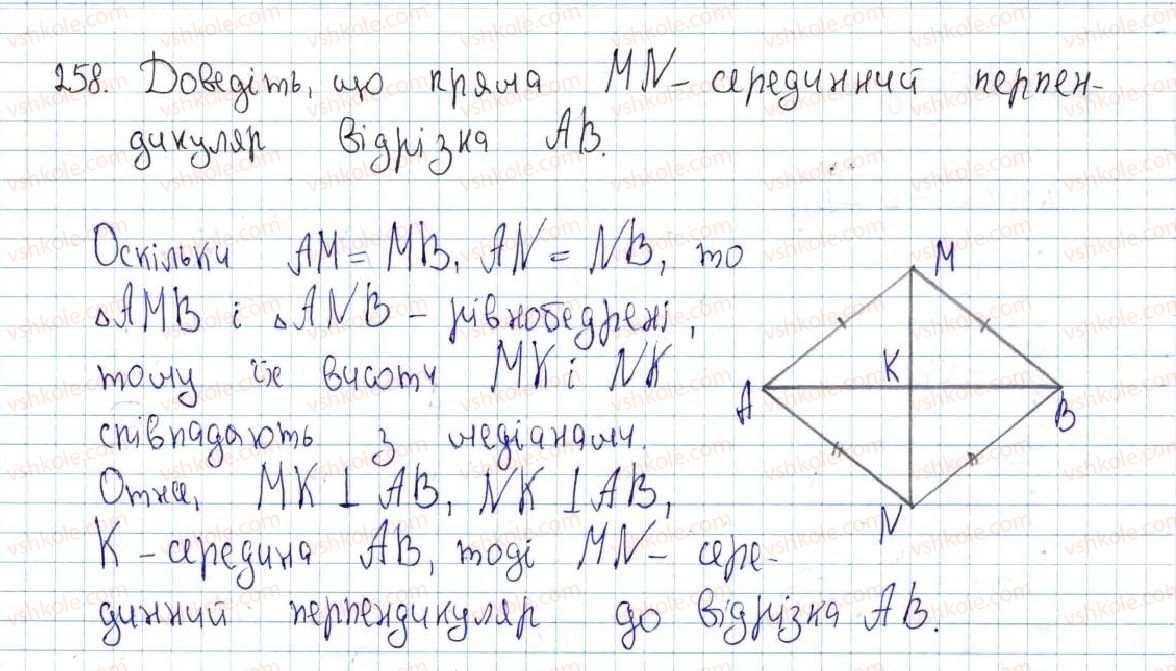 258. Доведіть, що пряма MN – серединний перпен-
дикуляр відрізка AB.
Оскільки AM = MB, AN = NB, то
△AMB і △ANB – рівнобедрені,
тому їх висоти MK і NK
співпадають з медіанами.
Отже, MK ⊥ AB, NK ⊥ AB,
K – середина AB, тоді MN – сере-
динний перпендикуляр до відрізка AB.
M
K
A
B
N
vshkole.com